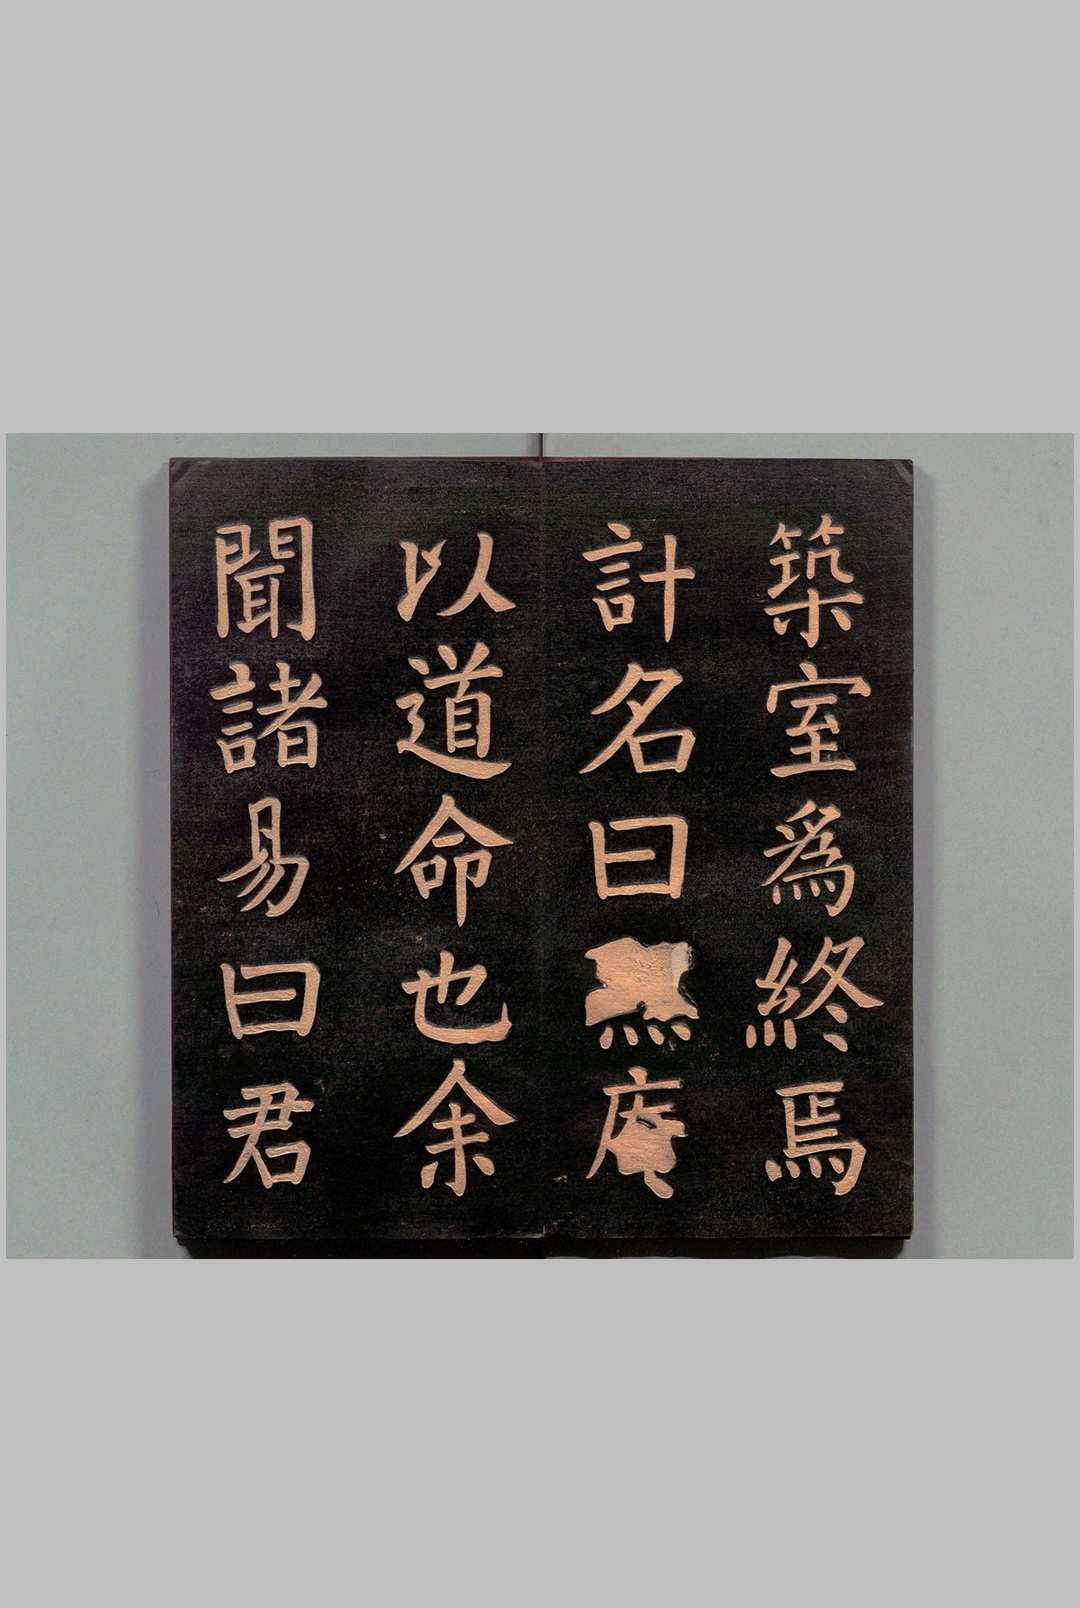 築室爲終焉
計名曰庵
以道命也余
聞諸易曰君